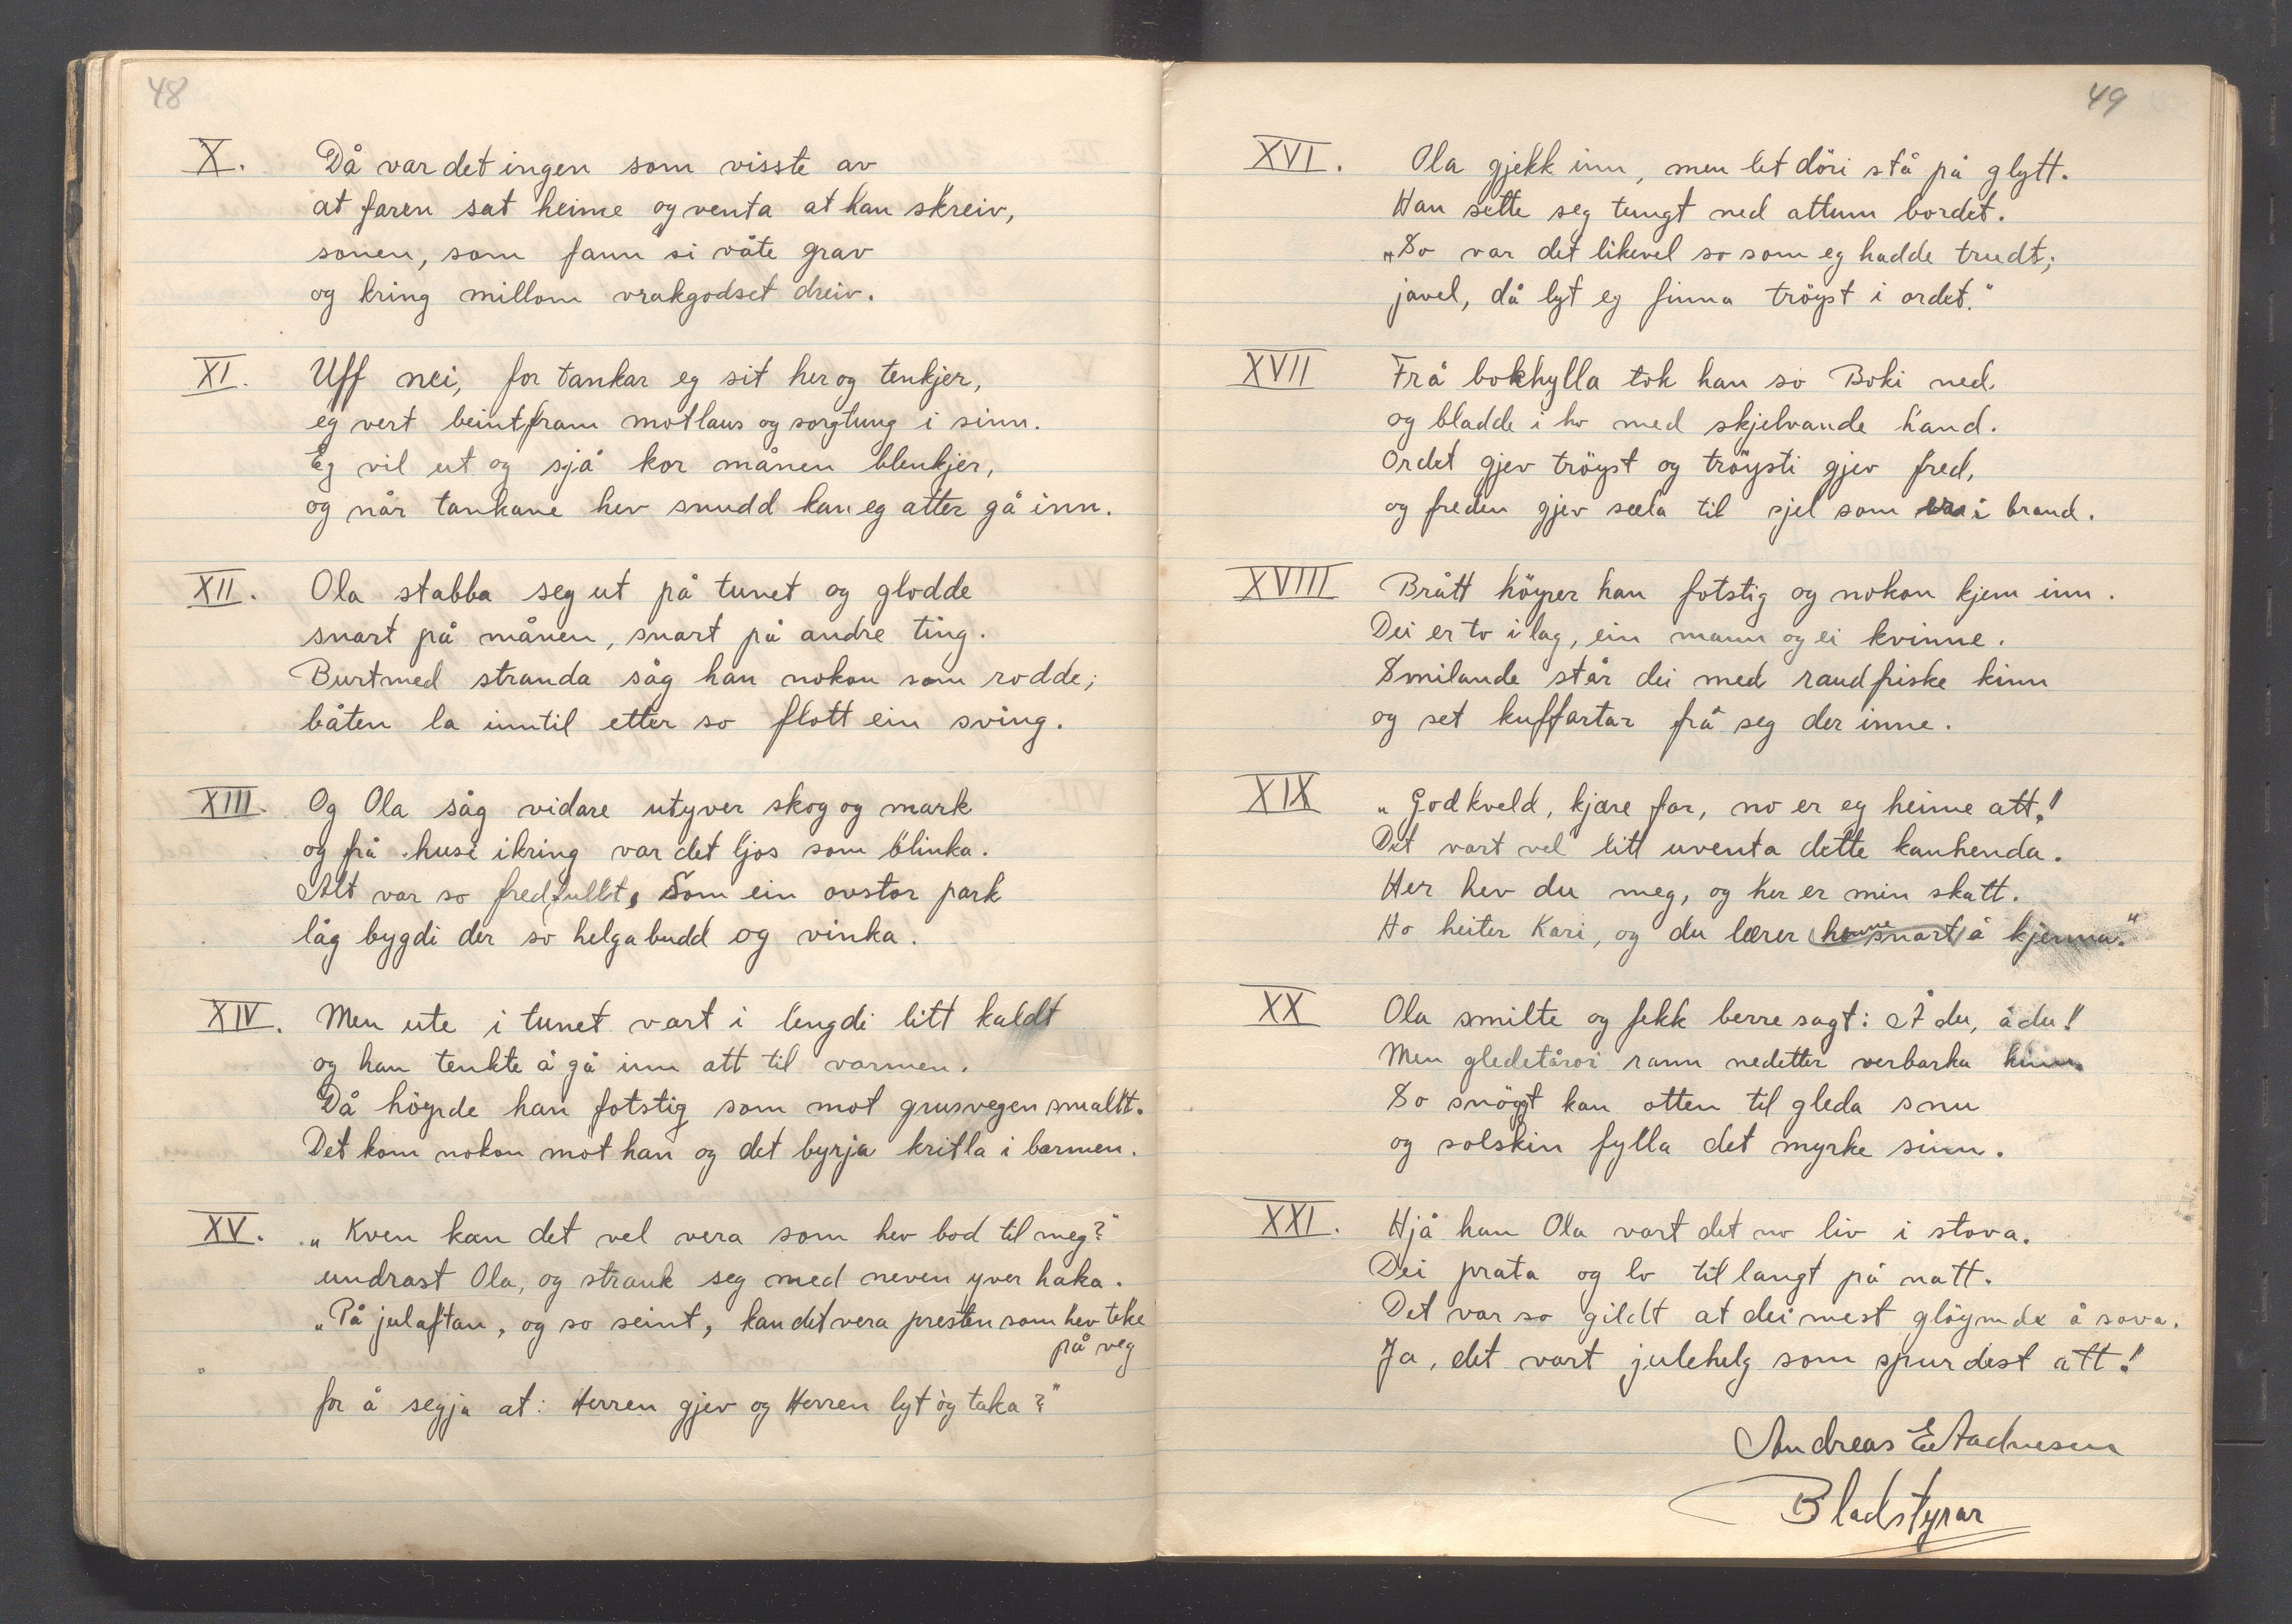 48
X. Då var det ingen som visste av
at faren sat heime og venta at han skreiv,
sonen, som fann si våte grav
og kring millom vrakgodset dreiv.
XI. Uff nei, for tankar eg sit her og tenkjer,
eg vert beintfram motlaus og sorgtung i sinn.
Eg vil ut og sjå kor månen blenkjer,
og når tankane hev snudd kan eg atter gå inn.
XII. Ola stabba seg ut på tunet og glodde
snart på månen, snart på andre ting.
Burtmed stranda såg han nokon som rodde;
båten la inntil etter so flott ein sving.
XIII. Og Ola såg vidare utyver skog og mark
og frå husi ikring var det ljos som blinka.
Alt var so fredfullt, Som ein ovstor park
låg bygdi der so helgabudd og vinka.
XIV. Men ute i tunet vart i lengdi litt kaldt
og han tenkte å gå inn att til varmen.
Då höyrde han fotstig som mot grusvegen smaltt.
Det kom nokon mot han og det byrja kritla i barmen.
XV. „Kven kan det vel vera som hev bod til meg?"
undrast Ola, og strauk seg med neven yver haka.
„På julaftan, og so seint, kan det vera presten som hev teke
på veg
for å segja at: Herren gjev og Herren lyt òg taka?"
49
XVI. Ola gjekk inn, men let döri stå på glytt.
Han sette seg tungt ned attum bordet.
„So var det likevel so som eg hadde trudt;
javel, då lyt eg finna tröyst i ordet."
XVII Frå bokhylla tok han so Boki ned
og bladde i ho med skjelvande hand.
Ordet gjev tröyst og tröysti gjev fred,
og freden gjev sæla til sjel som er i brand.
XVIII Brått höyrer han fotstig og nokon kjem inn.
Dei er to i lag, ein mann og ei kvinne.
Smilande står dei med raudfriske kinn
og set kuffartar frå seg der inne.
XIX „Godkveld, kjære far, no er eg heime att!
Det vart vel litt uventa dette kanhenda.
Her hev du meg, og her er min skatt.
Ho heiter Kari, og du lærer henne snart å kjenna."
XX Ola smilte og fekk berre sagt: Å du, å du!
Men gledetåror rann nedetter verbarka kinn.
So snögt kan otten til gleda snu
og solskin fylla det myrke sinn.
XXI. Hjå han Ola vart det no liv i stova.
Dei prata og lo til langt på natt.
Det var so gildt at dei mest glöymde å sova.
Ja, det vart julehelg som spurdest att!
Andreas E
Bladstyrar